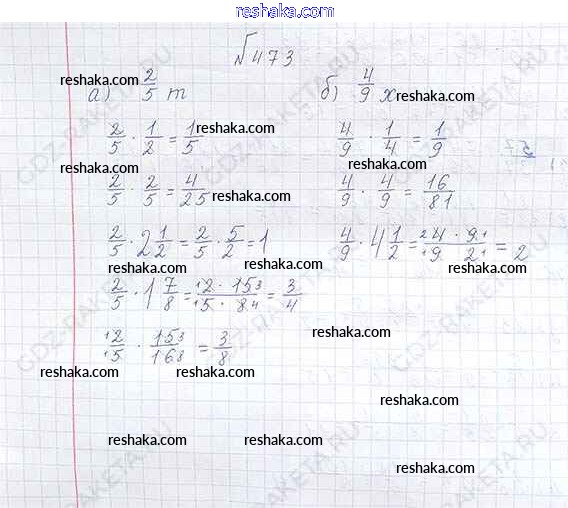 reshaka.com
№473
reshaka.com reshaka.com
а) 2/5 m б) 4/9 x reshaka.com
2/5 · 1/2 = 1/5 reshaka.com 4/9 · 1/4 = 1/9
reshaka.com reshaka.com
2/5 · 2/5 = 4/25 reshaka.com 4/9 · 4/9 = 16/81
reshaka.com reshaka.com
2/5 · 2 1/2 = 2/5 · 5/2 = 1 4/9 · 4 1/2 = 4 · 9/9 2 = 2
reshaka.com reshaka.com reshaka.com
2/5 · 1 7/8 = 2 · 15/5 · 8 = 3/4
reshaka.com
2/5 · 15/16 = 3/8
reshaka.com reshaka.com
reshaka.com reshaka.com
reshaka.com
reshaka.com reshaka.com
GDZ-RAKETA.RU